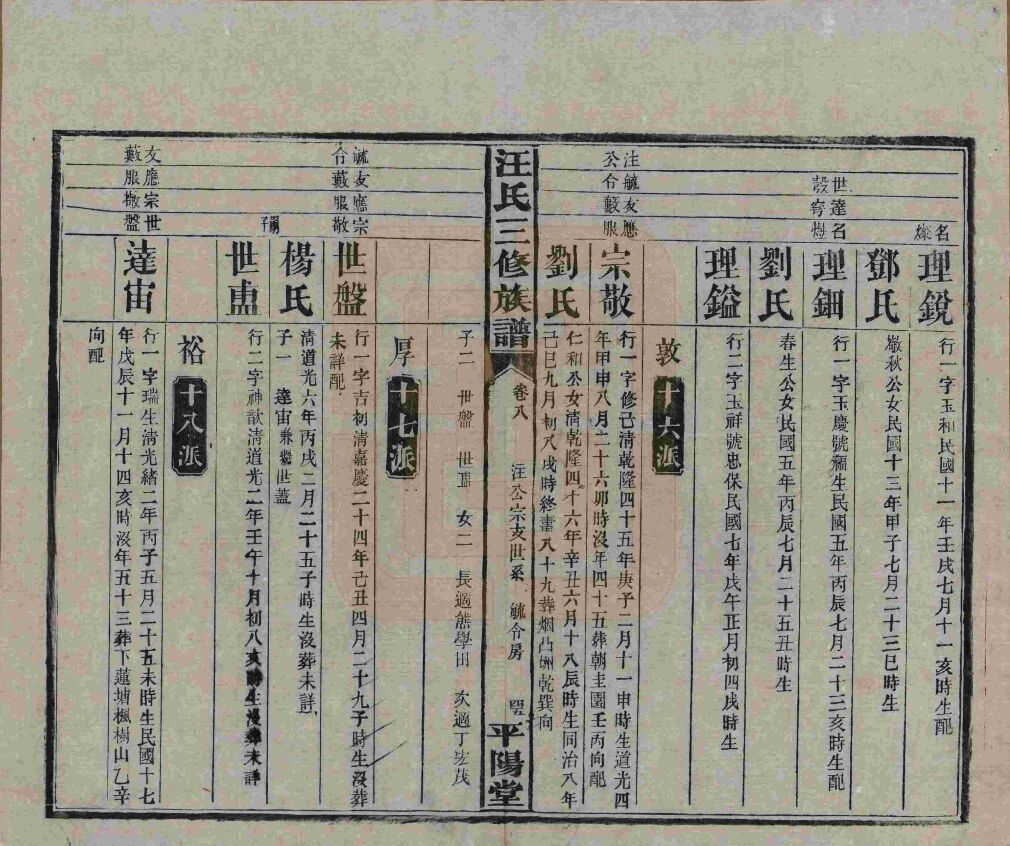 名燦
理銳
行一字玉和民國十一年壬戌七月十一亥時生配
鄧氏
嚴秋公女民國十三年甲子七月二十三巳時生
世達名
穀穹煜
理鈿
行一字玉慶號獮生民國五年丙辰七月二十三亥時生配
劉氏
春生公女民國五年丙辰七月二十五丑時生
理鎰
行二字玉祥號忠保民國七年戊午正月初四戌時生
敦 十六派
汪毓友應
公令藪服
宗敬
行一字修己清乾隆四十五年庚子二月十一申時生道光四
年甲申八月二十六卯時沒年四十五葬朝圭園壬丙向配
劉氏
仁和公女清乾隆四十六年辛丑六月十八辰時生同治八年
己巳九月初八戌時終壽八十九葬烟凸洲乾巽向
汪氏三修族譜
卷八
汪公宗支世系
毓令房
平陽堂
子二 世盤 世盙 女二 長適熊學田 次適丁宏茂
厚 十七派
毓友應宗
令藪服敬
世盤
行一字吉初清嘉慶二十四年己丑四月二十九子時生沒葬
未詳配
楊氏
清道光六年丙戌二月二十五子時生沒葬未詳
子一 達宙兼繼世盖
嗣子
世盙
行二字神歆清道光二年壬午十月初八亥時生沒葬未詳
裕 十八派
友應宗世
藪服敬盤
達宙
行一字瑞生清光緒二年丙子五月二十五未時生民國十七
年戊辰十一月十四亥時沒年五十三葬下蓮塘楓樹山乙辛
向配